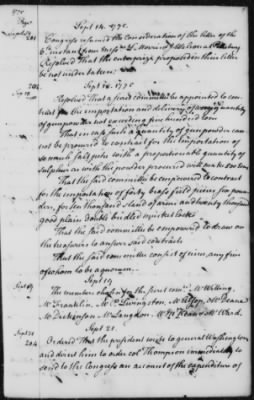 Sept 14. 1775.
Congress resumed the consideration of the letter of the
Resolved That the enterprize proposed in this letter
be not undertaken
202
Sept 18. 1775
Resolved That a secret committee be appointed to con-
tract for the importation and delivery of any quantity
of gunpowder not exceeding five hundred tons
That in case such a quantity of gunpowder can
not be procured to contract for the importation of
so much salt petre with a proportionable quantity of
sulphur as with the powder procured will make 500 tons
That the said committee be empowered to contract
for the importation of forty brass field pieces six poun-
ders, for ten thousand stand of arms and twenty thousand
good plain double bridled musket locks
That the said committee be empowered to draw on
the treasurers to answer said contracts
That the said committee consist of nine, any five
of whom to be a quorum.
Sept 19
The members chosen for the secret comee Mr Willing,
Mr Franklin, Mr P. Livingston, Mr Alsop, Mr Deane
Mr Dickinson Mr Langdon, Mr McKean & Mr Ward.
204
Sept 21.
Ordered That the president write to general Washington
and direct him to order col Thompson immediately to
send to the Congress an account of the expenditure of